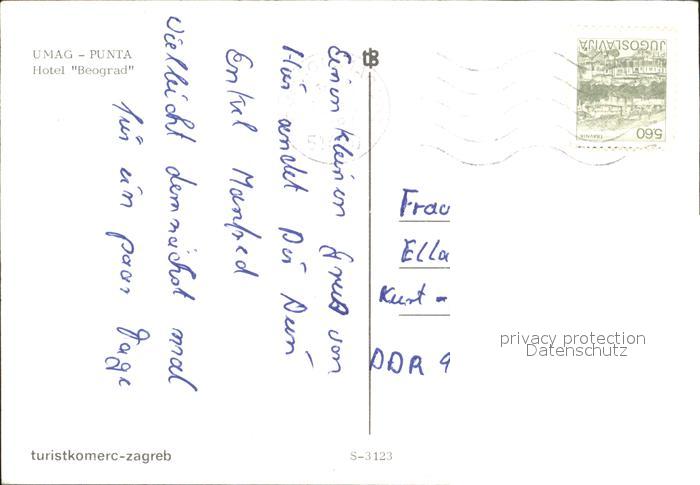 UMAG – PUNTA
Hotel "Beograd"
Einen kleinen Gruß von
Hir sendet Dir Dein
Enkel Manfred
Vielleicht demnächst mal
für ein paar Tage
Frau
Ella
Kurt-
DDR 9
JUGOSLAVIJA
TRAVNIK
5.60
privacy protection
Datenschutz
turistkomerc-zagreb
S-3123